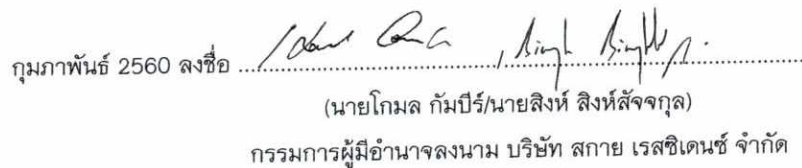 กุมภาพันธ์ 2560 ลงชื่อ
(นายโกมล กัมบีร์/นายสิงห์ สิงห์สัจจกุล)
กรรมการผู้มีอำนาจลงนาม บริษัท สกาย เรสซิเดนซ์ จำกัด